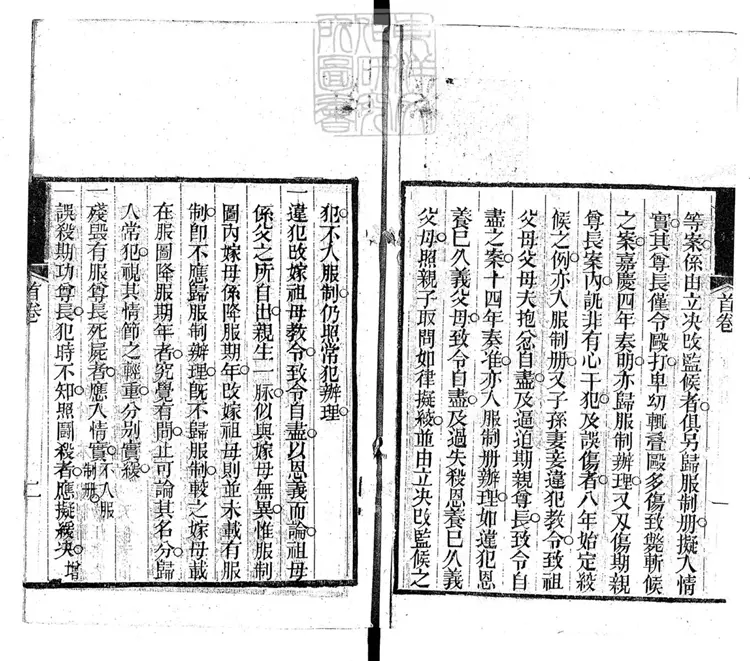 等案係由立決改監候者俱另歸服制册擬入情
實其尊長僅令毆打卑幼輒疊毆多傷致斃斬候
之案嘉慶四年奏明亦歸服制辦理又刃傷期親
尊長案內訊非有心干犯及誤傷者八年始定絞
候之例亦入服制册又子孫妻妾違犯教令致祖
父母父母夫抱忿自盡及逼迫期親尊長致令自
盡之案十四年奏准亦入服制册辦理如違犯恩
養已久義父母致令自盡及過失殺恩養已久義
父母照親子取問如律擬絞並由立決改監候之
首卷
一
犯不入服制仍照常犯辦理
一違犯改嫁祖母教令致令自盡以恩義而論祖母
係父之所自出親生一脉似與嫁母無異惟服制
圖內嫁母係降服期年改嫁祖母則並未載有服
制卽不應歸服制辦理旣不歸服制較之嫁母載
在服圖降服期年者究覺有間止可論其名分歸
入常犯視其情節之輕重分別實緩
一殘毀有服尊長死屍者應入情實不入服制册
一誤殺期功尊長犯時不知照鬬殺者應擬緩決增
首卷
二